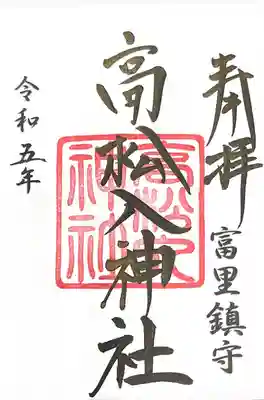 奉拝
富里鎮守
高松入神社
高松入
神社
令和五年